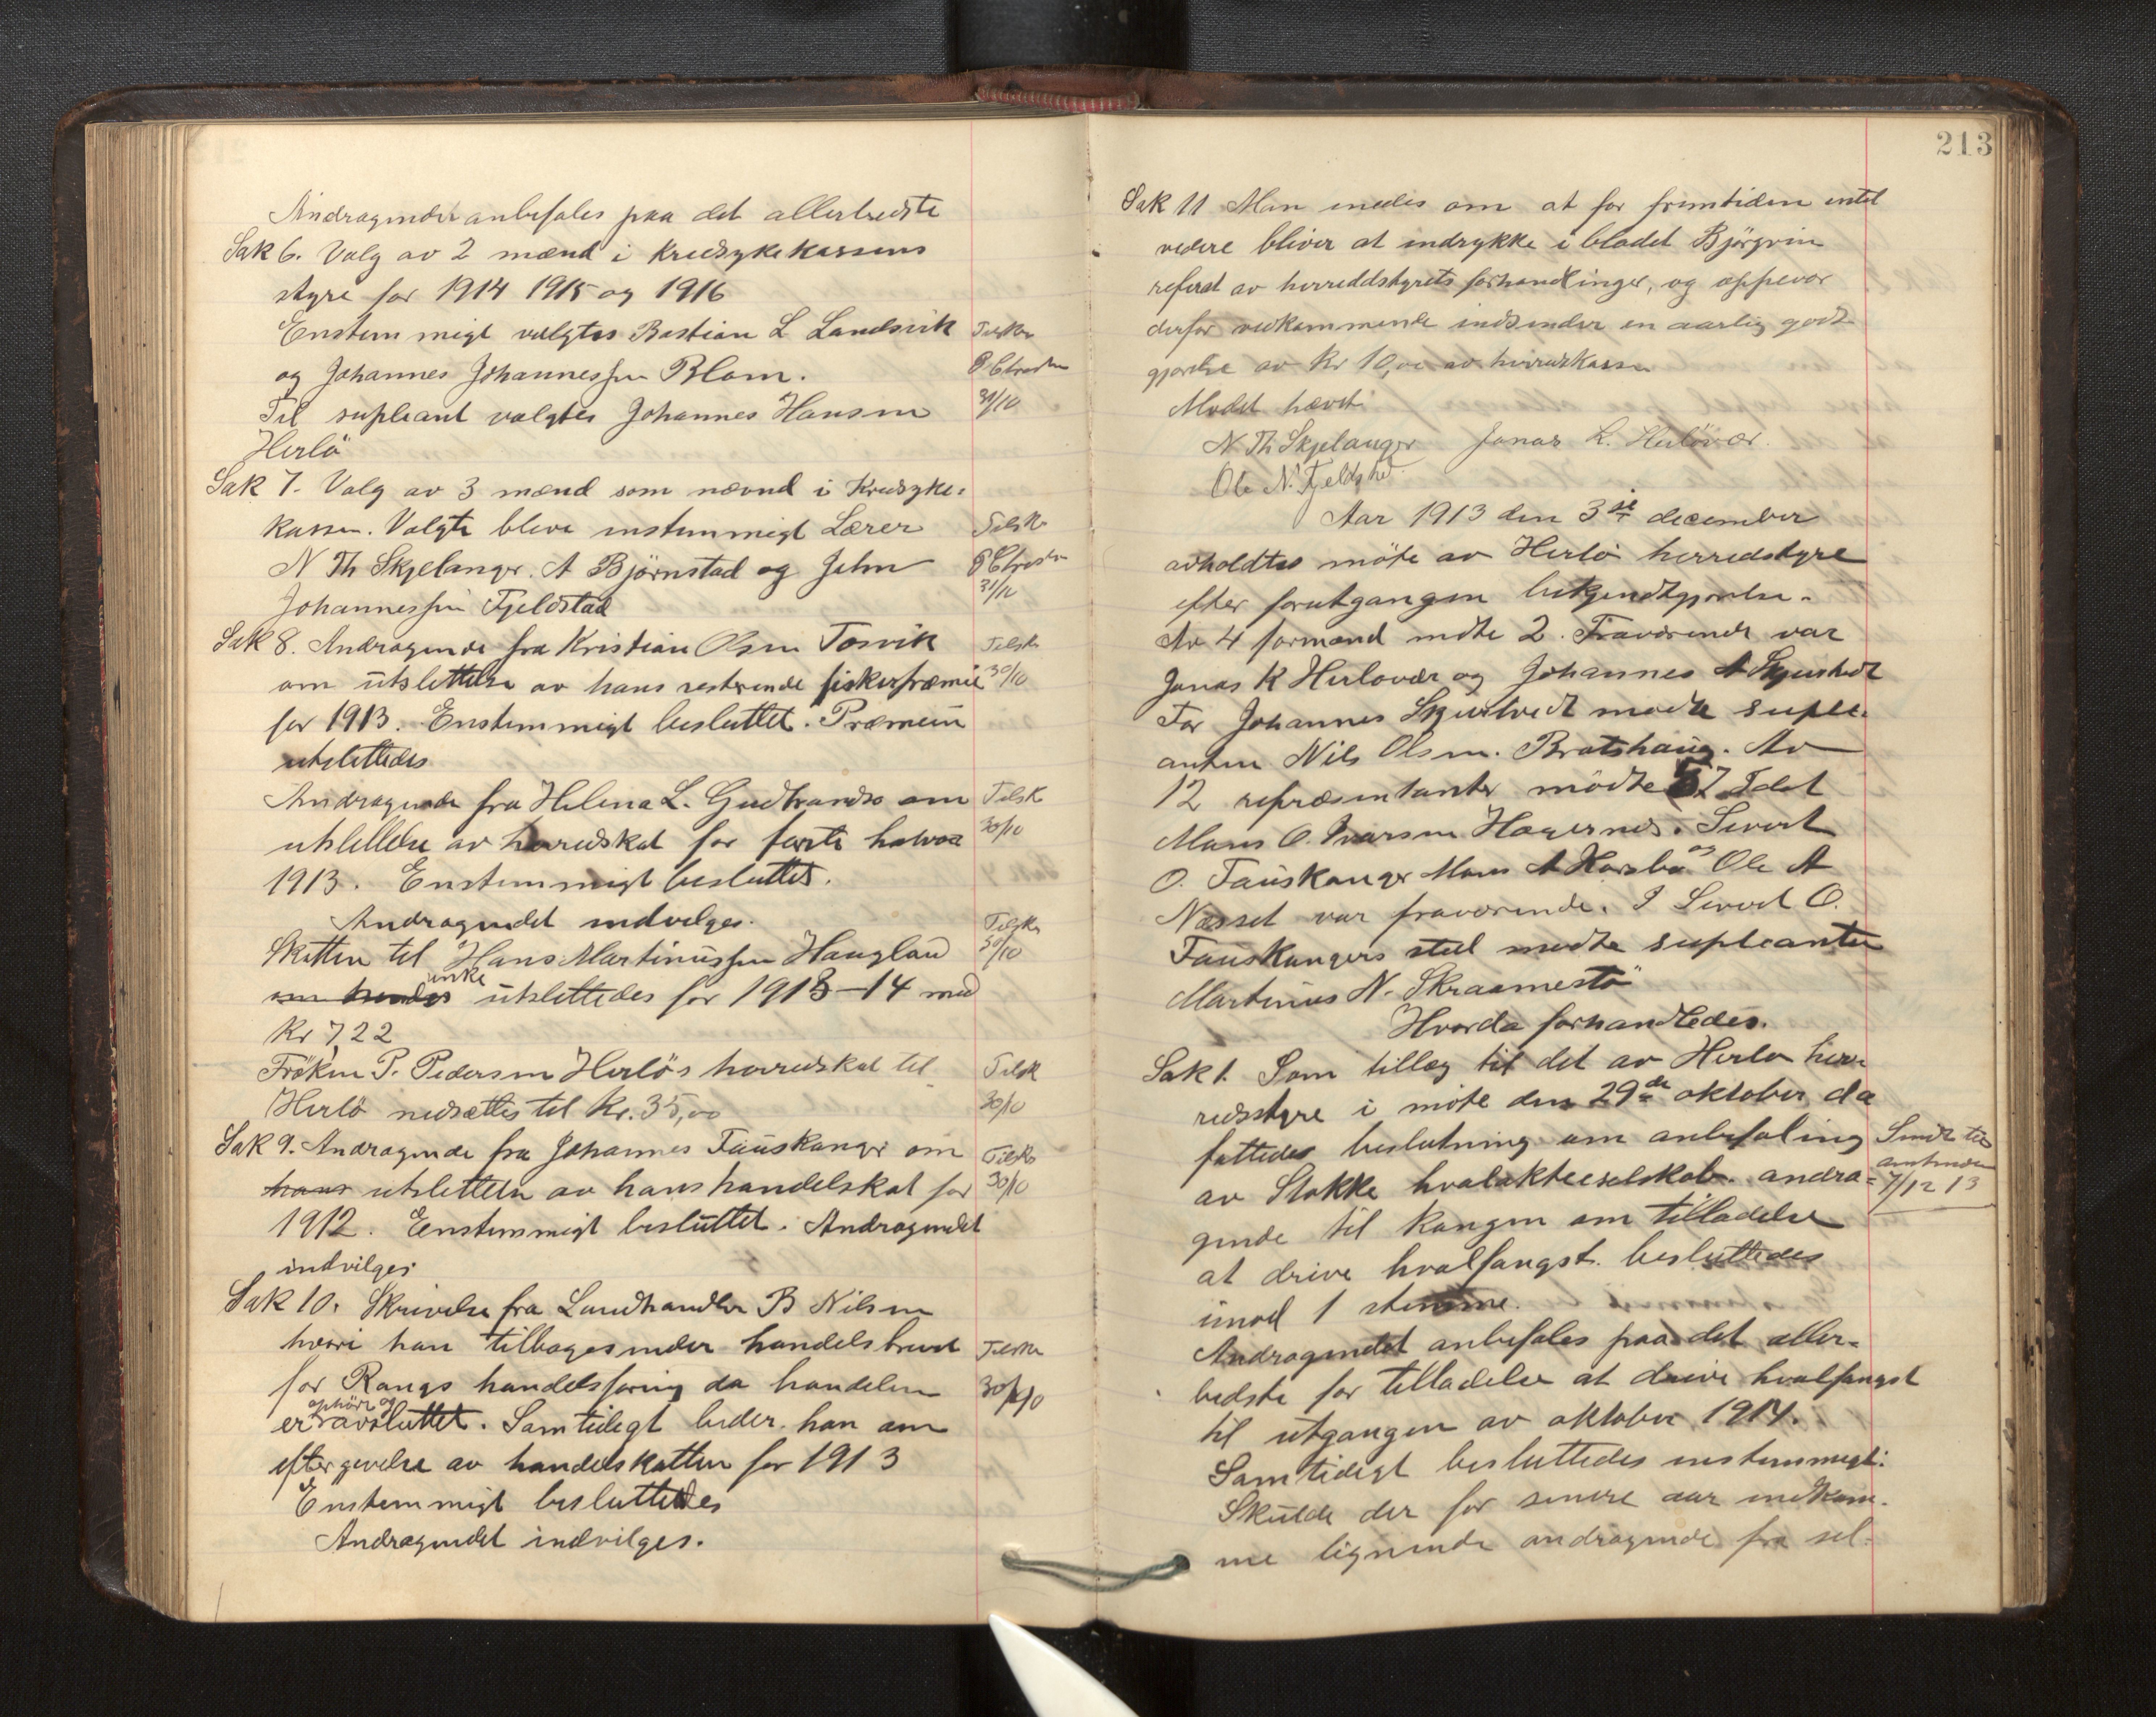 Andragendet anbefales paa det allerbedste
Sak 6. Valg av 2 mænd i kredsykekassens
styre for 1914 1915 og 1916
Enstemmigt valgtes Bastian L Landsvik
og Johannes Johannessen Blom.
Til supleant valgtes Johannes Hansen
Herlö
Tilskr
31/10
Sak 7. Valg av 3 mænd som nævnd i Kredsyke-
kassen. Valgte bleve enstemmigt Lærer
N Th Skjelanger. A Björnstad og John
Johannessen Fjeldstad
Tilskr
31/10
Sak 8. Andragende fra Kristian Olsen Tosvik
om utslettelse av hans resterende fiskerpræmie
for 1913. Enstemmigt besluttet. Præmien
utslettedes
Tilskr
30/10
Andragende fra Helena L. Gudbrands om
utslettelse av herredskat for förste halvaar
1913. Enstemmigt besluttet.
Andragendet indvilges.
Tilsk
30/10
Skatten til Hans Martinussen Haugland
enke
utslettedes for 1913-14 med
Kr 7,22
Tilskr
30/10
Fröken P. Pedersen Herlös herredskat til
Herlö nedsættes til Kr. 35,00
Tilsk
30/10
Sak 9. Andragende fra Johannes Fauskanger om
hans utslettelse av hans handelskat for
1912. Eenstemmigt besluttet. Andragendet
indvilges
Tilskr
30/10
Sak 10. Skrivelse fra Landhandler B Nilsen
hvori han tilbagesender handelsbrevet
for Rongs handelsforing da handelen
ophört og
er avsluttet. Samtidigt beder han om
eftergivelse av handelskatten for 1913
Enstemmigt besluttedes
Andragendet indvilges.
Tilskr
30/10
213
Sak 11 Man enedes om at for fremtiden intet
videre bliver at indrykke i bladet Björgvin
referat av herreddstyrets forhandlinger, og oppevor
derfor vedkommende indsender en aarlig godt
gjørelse av Kr 10,00 av herredskassen
Mødet hævet.
N Th Skjelanger Jonas K. Herlövær.
Ole N. Fjeldstad
Aar 1913 den 3die december
avholdtes möte av Herlö herredstyre
efter forutgangen bekjendtgjørelse.
Av 4 formænd mötte 2. Fraværende var
Jonas K Herlovær og Johannes A Skjerstvedt
For Johannes Skjerstvedt mødte suple-
anten Nils Olsen. Bratshaug. Av
12 repræsentanter mödte 7 Idet
Mons O. Ivarsen Hagenes. Sivert
O. Fauskanger Mons A Harsbø og Ole A
Næsset var fraværende. I Sivert O.
Fauskangers sted mødte supleanten
Martinus N. Skraamestö
Hvorda forhandledes.
Sak 1. Som tillæg til det av Herlø her-
redsstyre i möte den 29de oktober da
fattedes beslutning om anbefaling
av Stokke hvalaktieselskab. andra-
gende til Kongen om tilladelse
at drive hvalfangst. besluttedes
imod 1 stemme.
Sendt til
amtmanden
7/12 13
Andragendet anbefales paa det aller-
bedste for tilladelse at drive hvalfangst
til utgangen av oktober 1914.
Samtidigt besluttedes enstemmigt:
Skulde der for senere aar indkom-
me lignende andragende fra sel-